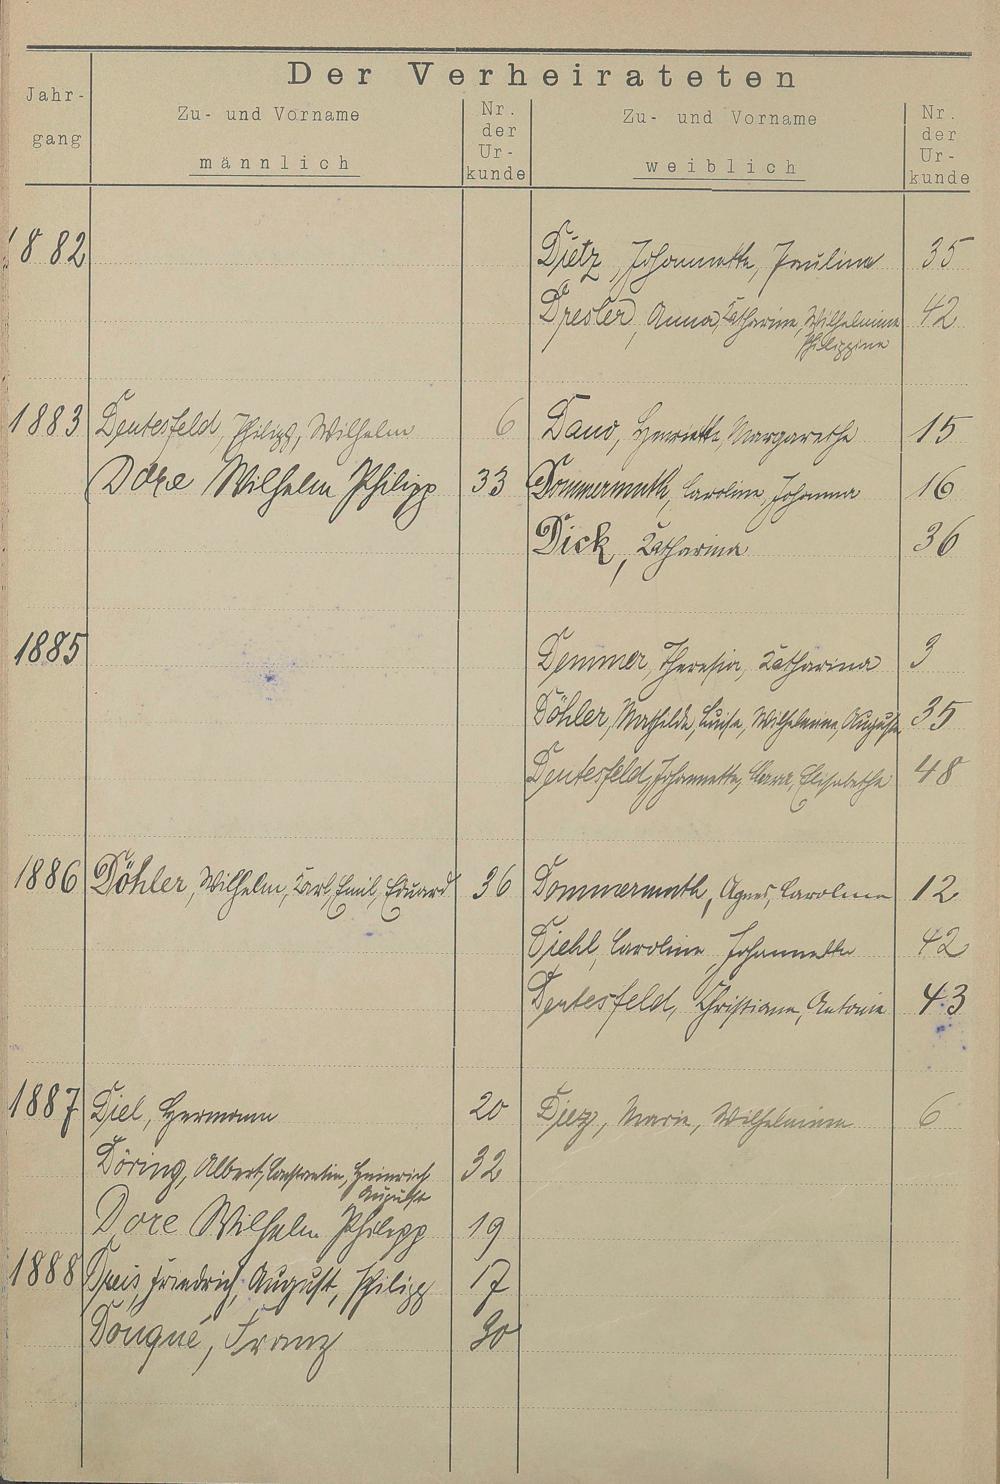 Der Verheirateten
Jahr-
gang
Zu- und Vorname
männlich
Nr.
der
Ur-
kunde
Zu- und Vorname
weiblich
Nr.
der
Ur-
kunde
1882 Dietz, Johannette, Pauline 35
Dresler, Anna, Catharine, Wilhelmine 42
Philippine
1883 Dentesfeld, Philipp, Wilhelm 6 Dauo, Henriette, Margarethe 15
Wilhelm Philipp 33 Dommermuth, Caroline, Johanna 16
Dick, Catharina 36
1885 Demmer, Theresia, Catharina 3
Döhler, Mathilde, Luise, Wilhelmine, Auguste 35
Dentesfeld, Johannette, Clara, Elisabetha 48
1886 Döhler, Wilhelm, Karl, Emil, Eduard 36 Dommermuth, Agnes, Caroline 12
Diehl, Caroline, Johannette 42
Dentesfeld, Christiane, Antonie 43
1887 Diel, Hermann 20 Diez, Marie, Wilhelmine 6
Döring, Albert, Constantin, Heinrich 32
August
Dore Wilhelm Philipp 19
1888 Dreis, Friedrich, August, Philipp 17
Douqué, Franz 30